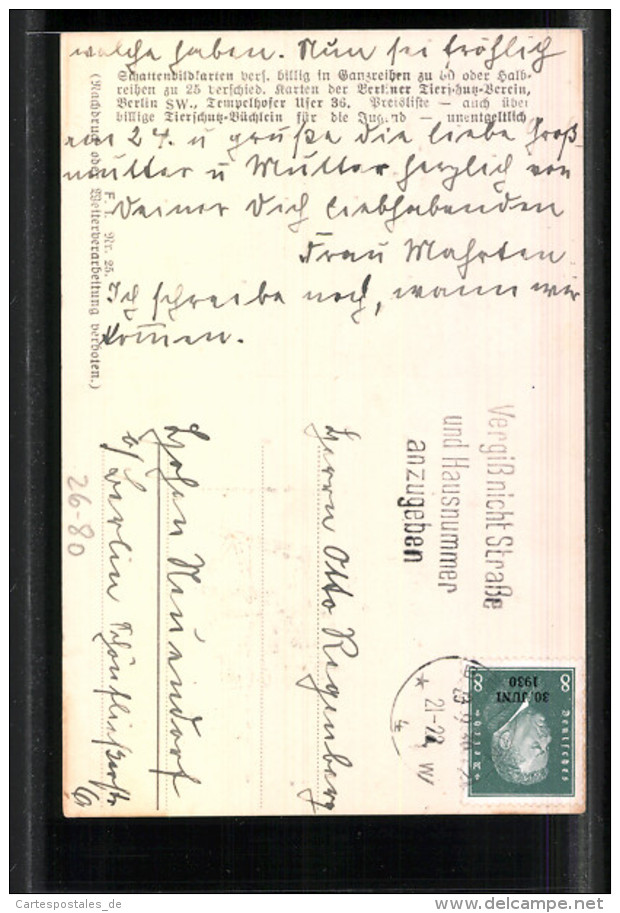 welche haben. Nun sei fröhlich
Schattenbildkarten vers. billig in Ganzreihen zu 60 oder Halb-
reihen zu 25 verschied. Karten der Berliner Tierschutz-Verein,
Berlin SW., Tempelhofer Ufer 36. Preisliste — auch über
billige Tierschutz-Büchlein für die Jugend — unentgeltlich
am 24. u grüße die liebe Groß-
mutter u Mutter herzlich von
Deiner Dich liebhabenden
Frau Mahrten
Ich schreibe noch, wann wir
kommen.
F. I. Nr. 25.
(Nachdruck oder Weiterverarbeitung verboten.)
Vergiß nicht Straße
und Hausnummer
anzugeben
Herrn Otto Regenberg
Hohen Neuendorf
b/ Berlin Schönfließerstr
26-80
21-22
* W
4
8 8
Deutsches
Reich
30. JUNI
1930
Cartespostales_de
www.delcampe.net